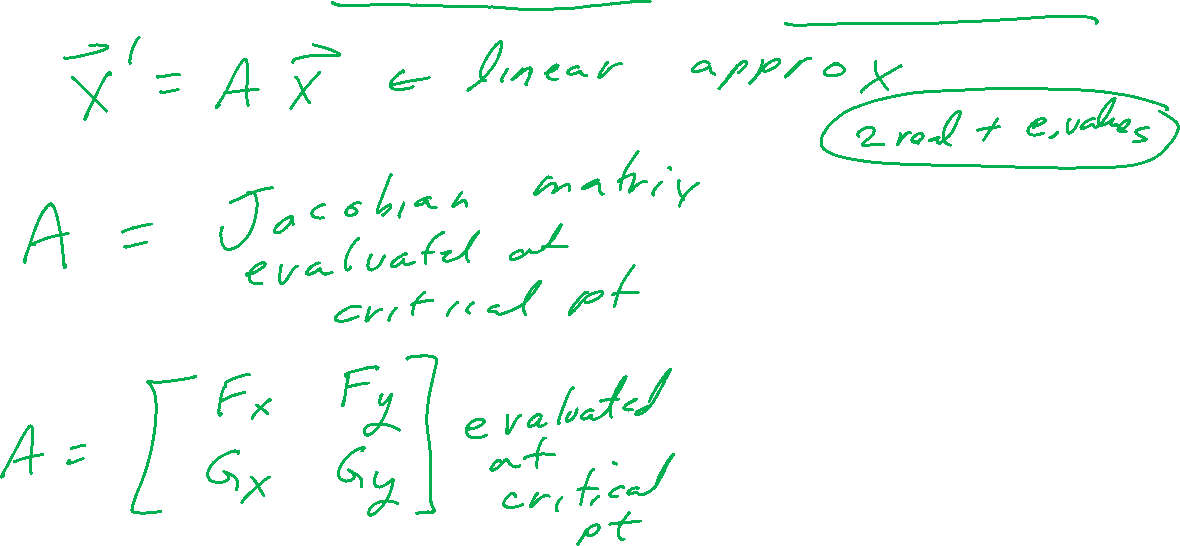 x⃗' = A x⃗ ← linear approx
2 real + e.values
A = Jacobian matrix
evaluated at
critical pt
A = [ Fx Fy
Gx Gy ] evaluated
at
critical
pt